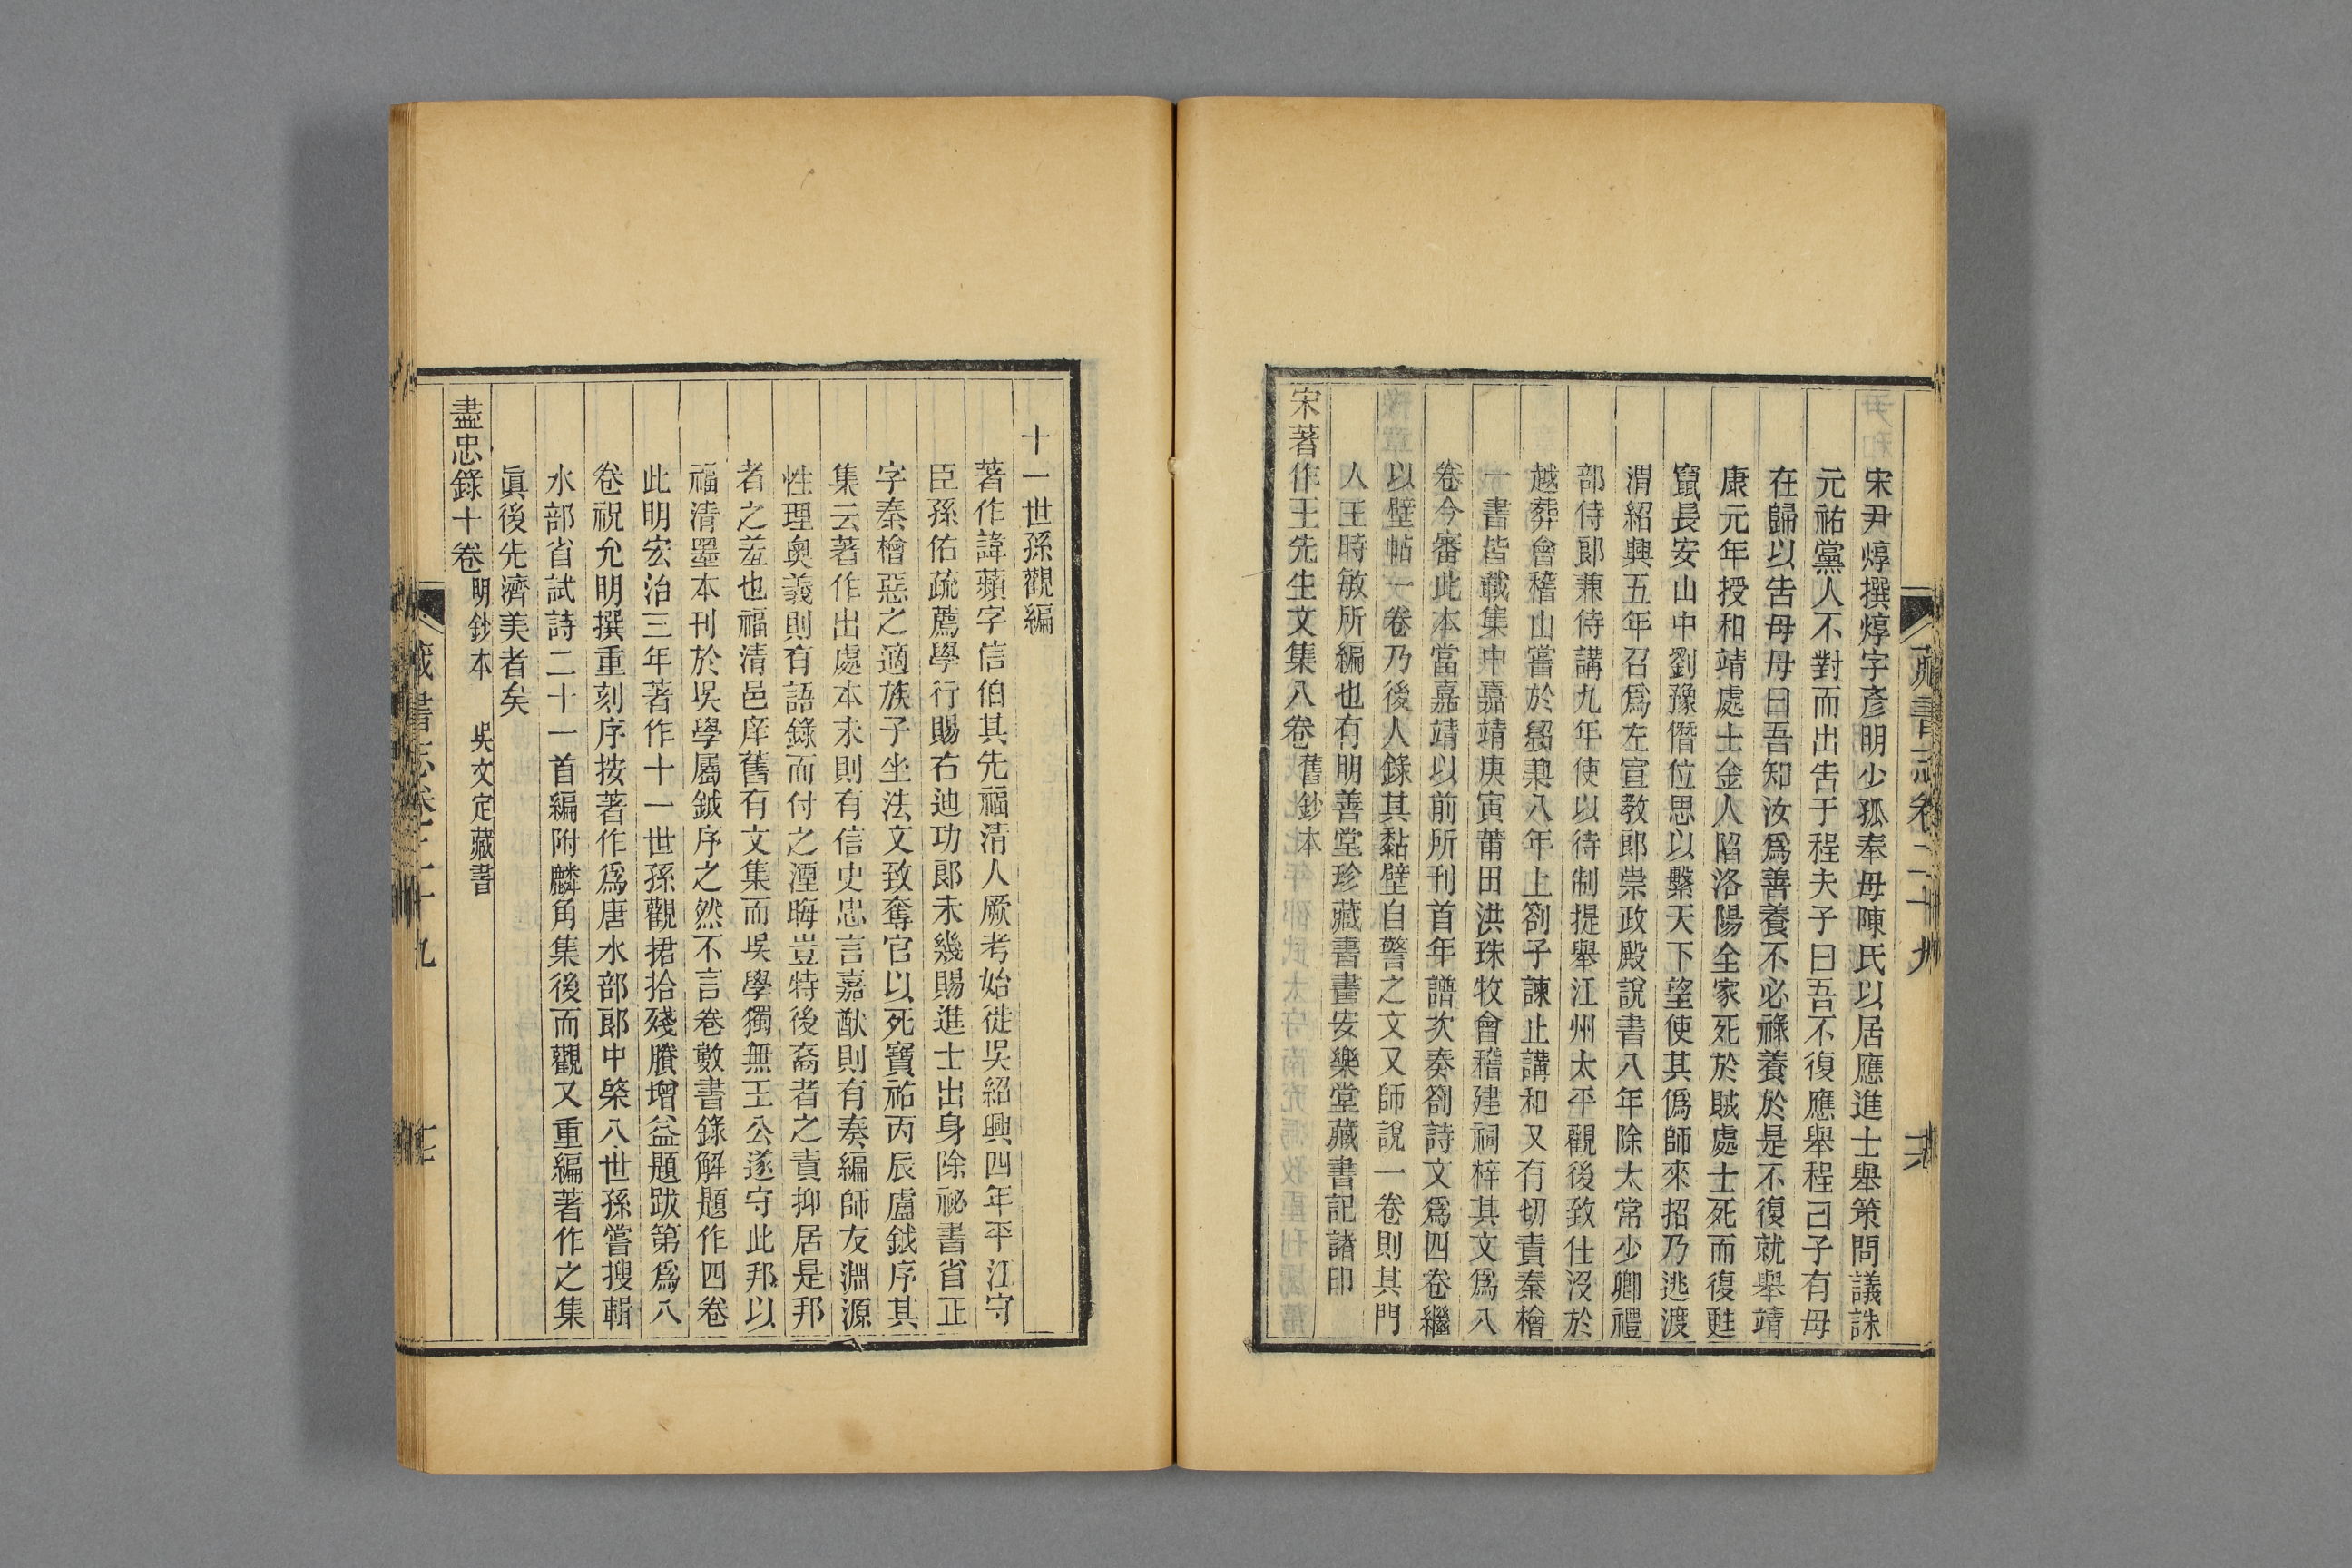 宋尹焞撰焞字彥明少孤奉母陳氏以居應進士舉策問議誅
元祐黨人不對而出告于程夫子曰吾不復應舉程曰子有母
在歸以告母母曰吾知汝爲善養不必祿養於是不復就舉靖
康元年授和靖處士金人陷洛陽全家死於賊處士死而復甦
竄長安山中劉豫僭位思以繫天下望使其僞師來招乃逃渡
渭紹興五年召爲左宣教郎崇政殿說書八年除太常少卿禮
部侍郎兼侍講九年使以待制提舉江州太平觀後致仕沒於
越葬會稽山嘗於紹興八年上劄子諫止講和又有切責秦檜
一書皆載集中嘉靖庚寅莆田洪珠牧會稽建祠梓其文爲八
卷今審此本當嘉靖以前所刊首年譜次奏劄詩文爲四卷繼
以壁帖一卷乃後人錄其黏壁自警之文又師說一卷則其門
人王時敏所編也有明善堂珍藏書畫安樂堂藏書記諸印
宋著作王先生文集八卷 舊鈔本
藏書志卷二十九 六
十一世孫觀編
著作諱蘋字信伯其先福清人厥考始徙吳紹興四年平江守
臣孫佑疏薦學行賜右迪功郎未幾賜進士出身除祕書省正
字秦檜惡之適族子坐法文致奪官以死寶祐丙辰盧鉞序其
集云著作出處本末則有信史忠言嘉猷則有奏編師友淵源
性理奧義則有語錄而付之湮晦豈特後裔者之責抑居是邦
者之羞也福清邑庠舊有文集而吳學獨無王公遂守此邦以
福清墨本刊於吳學屬鉞序之然不言卷數書錄解題作四卷
此明宏治三年著作十一世孫觀捃拾殘賸增益題跋第爲八
卷祝允明撰重刻序按著作爲唐水部郎中棨八世孫嘗搜輯
水部省試詩二十一首編附麟角集後而觀又重編著作之集
眞後先濟美者矣
盡忠錄十卷 明鈔本 吳文定藏書
藏書志卷二十九